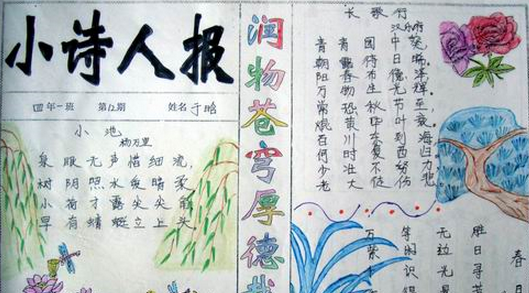 小诗人报
四年一班 第12期 姓名 于晗
小池
杨万里
泉眼无声惜细流,
树阴照水爱晴柔
小荷才露尖尖角
早有蜻蜓立上头
润物苍穹厚德
长歌行
汉乐府
青青园中葵
朝露待日晞
阳春布德泽
万物生光辉
常恐秋节至
焜黄华叶衰
百川东到海
何时复西归
少壮不努力
老大徒伤悲
春日
胜日寻
无边光
等闲识得
万紫